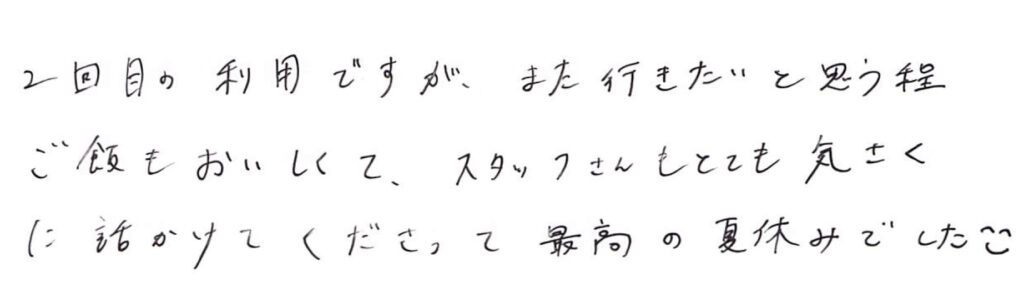 2回目の利用ですが、また行きたいと思う程
ご飯もおいしくて、スタッフさんもとても気さく
に話かけてくださって最高の夏休みでした